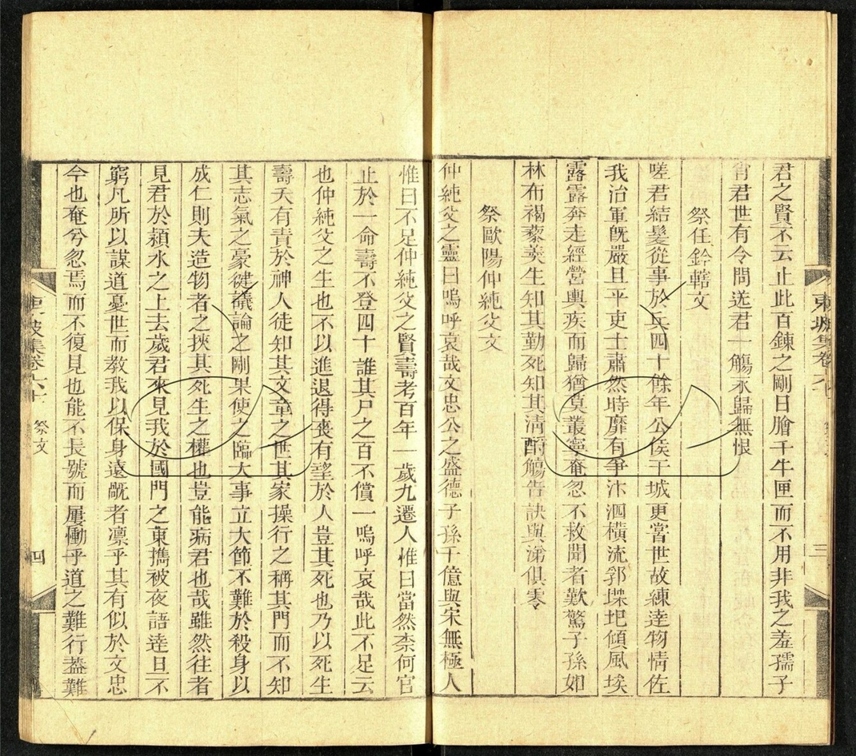 君之賢不云止此百鍊之剛日膾千牛匣而不用非我之羞孺子
有君世有令問送君一觴永歸無恨
祭任鈐轄文
嗟君結髮從事於兵四十餘年公侯干城更嘗世故練達物情佐
我治軍旣嚴且平吏士肅然時靡有爭汴泗橫流郛堞圮傾風埃
霧露奔走經營輿疾而歸猶莫叢寧奄忽不救聞者歎驚子孫如
林布褐藜羮生知其勤死知其清酹觴告訣與涕俱零
祭歐陽仲純父文
仲純父之靈曰嗚呼哀哉文忠公之盛德子孫千億與宋無極人
惟曰不足仲純父之賢壽考百年一歲九遷人惟曰當然柰何官
止於一命壽不登四十誰其尸之百不償一嗚呼哀哉此不足云
也仲純父之生也不以進退得喪有望於人豈其死也乃以死生
壽夭有責於神人徒知其文章之世其家操行之稱其門而不知
其志氣之豪健議論之剛果使之臨大事立大節不難於殺身以
成仁則夫造物者之挾其死生之權也豈能病君也哉雖然往者
見君於潁水之上去歲君來見我於國門之東擕被夜語達旦不
窮凡所以謀道憂世而敎我以保身遠戲者凛乎其有似於文忠
今也奄兮忽焉而不復見也能不長號而屢慟乎道之難行蓋難
東坡集卷六十
祭文
三
東坡集卷六十
祭文
四